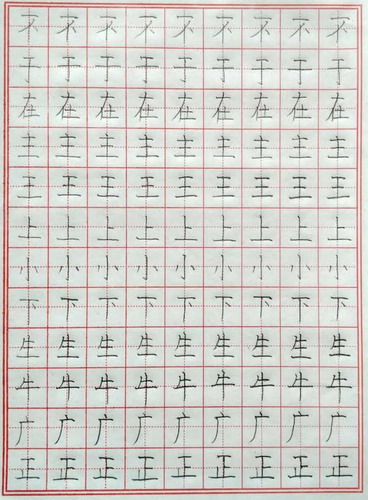 不不不不不不不不不
于于于于于于于于于
在在在在在在在在在
主主主主主主主主主
王王王王王王王王王
上上上上上上上上上
小小小小小小小小小
下下下下下下下下下
生生生生生生生生生
牛牛牛牛牛牛牛牛牛
广广广广广广广广广
正正正正正正正正正